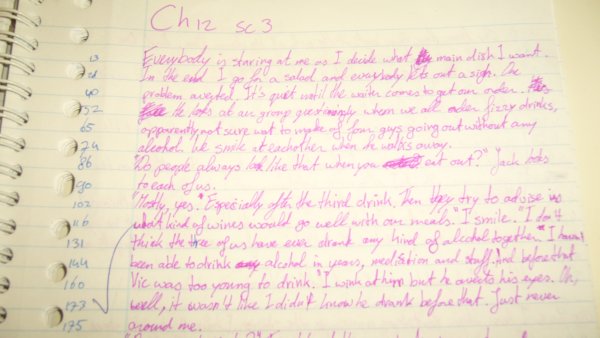 Ch 12 sc 3
13 Everybody is staring at me as I decide what main dish I want.
In the end I go for a salad and everybody lets out a sigh. One
40 problem averted. It's quiet until the waiter comes to get our order.
52 He looks at our group questioningly when we all order fizzy drinks,
65 apparently not sure wat to make of four guys going out without any
74 alcohol. We smile at eachother when he walks away.
86 "Do people always look like that when you eat out?" Jack looks
90 to each of us.
102 "Mostly, yes." Especially after the third drink. Then they try to advise us
116 what kind of wines would go well with our meals." I smile. "I don't
131 think the three of us have ever drank any kind of alcohol together." I haven't
144 been able to drink alcohol in years, medication and stuff. And before that
160 Vic was too young to drink." I wink at him but he averts his eyes. Oh,
173 well, it wasn't like I didn't know he drank before that. Just never
175 around me.